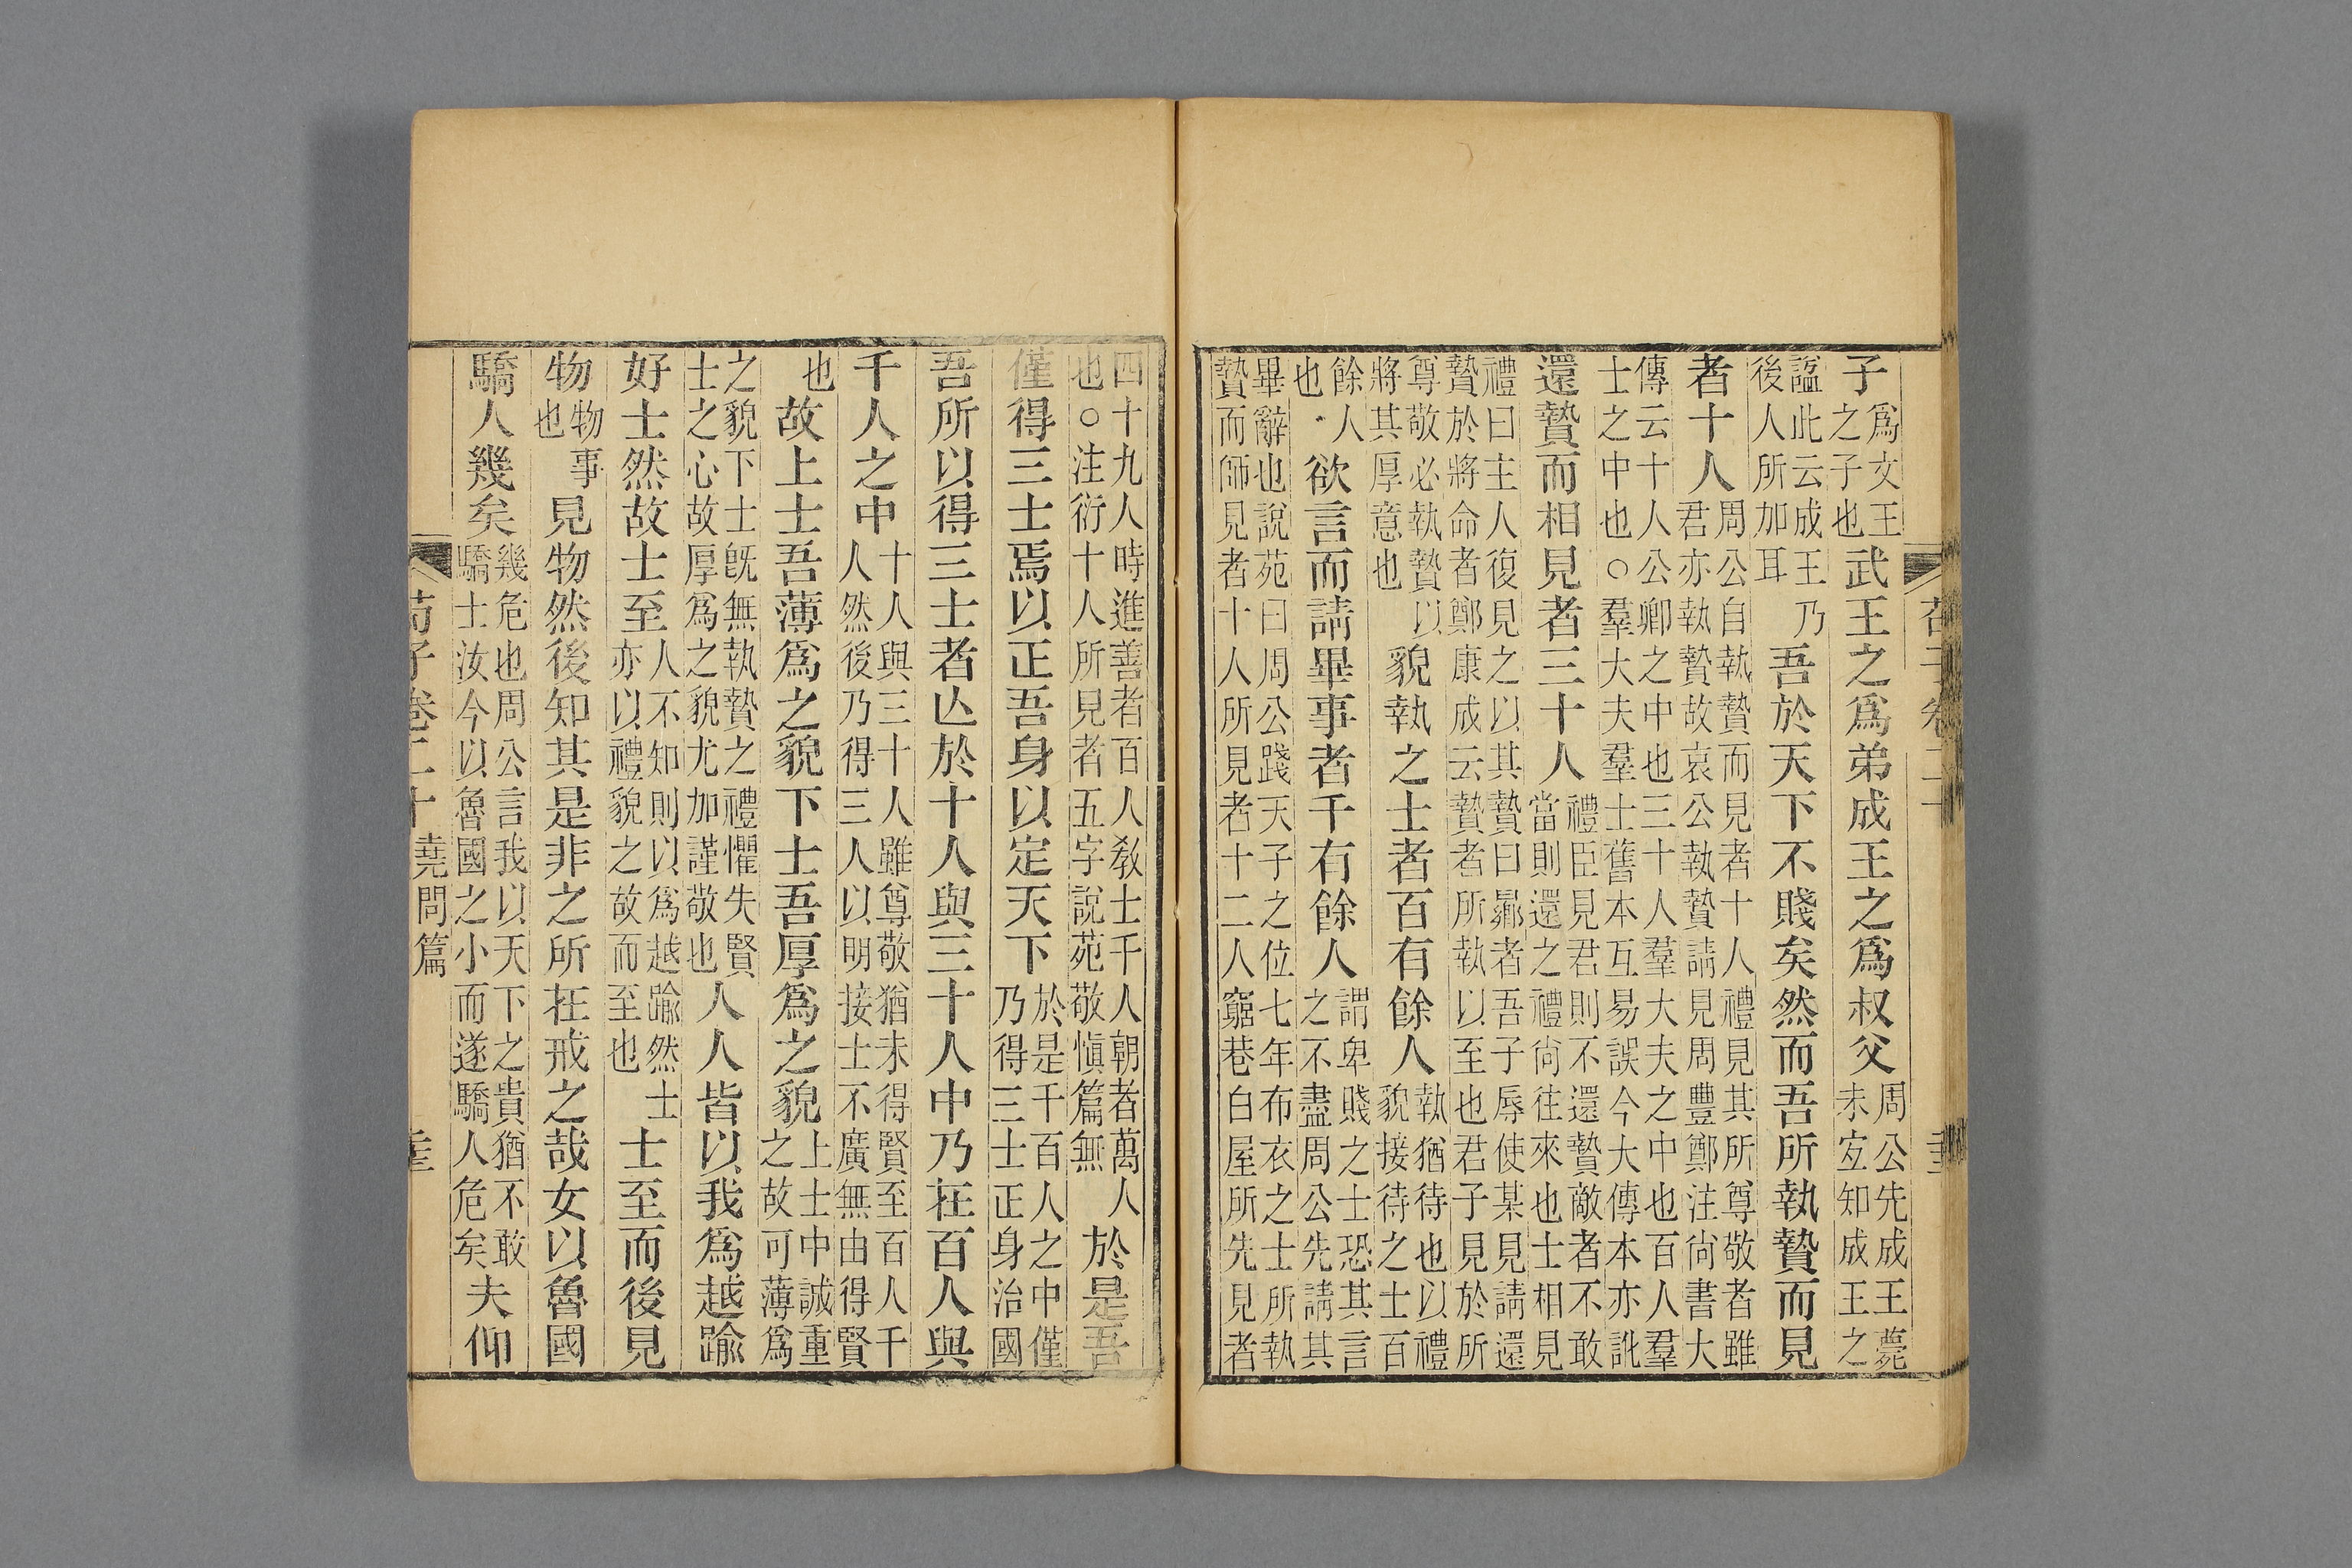 子為文王之子也武王之為弟成王之為叔父周公先成王薨未宐知成王之
謚此云成王乃後人所加耳吾於天下不賤矣然而吾所執贄而見
者十人周公自執贄而見者十人禮見其所尊敬者雖君亦執贄故哀公執贄請見周豐鄭注尙書大
傳云十人公卿之中也三十人羣大夫之中也百人羣士之中也○羣大夫羣士舊本互易誤今大傳本亦訛
還贄而相見者三十人禮臣見君則不還贄敵者不敢當則還之禮尙往來也士相見
禮曰主人復見之以其贄曰曏者吾子辱使某見請還贄於將命者鄭康成云贄者所執以至也君子見於所
尊敬必執贄以將其厚意也貌執之士者百有餘人執猶待也以禮貌接待之士百
餘人也欲言而請畢事者千有餘人謂卑賤之士恐其言之不盡周公先請其
畢辭也說苑曰周公踐天子之位七年布衣之士所執贄而師見者十人所見者十二人窮巷白屋所先見者
四十九人時進善者百人教士千人朝者萬人也○注衍十人所見者五字說苑敬愼篇無於是吾
僅得三士焉以正吾身以定天下於是千百人之中僅乃得三士正身治國
吾所以得三士者亾於十人與三十人中乃在百人與
千人之中十人與三十人雖尊敬猶未得賢至百人千人然後乃得三人以明接士不廣無由得賢
也故上士吾薄為之貌下士吾厚為之貌上士中誠重之故可薄為
之貌下士旣無執贄之禮懼失賢士之心故厚為之貌尤加謹敬也人人皆以我為越踰
好士然故士至人不知則以為越踰然士亦以禮貌之故而至也士至而後見
物物事也見物然後知其是非之所在戒之哉女以魯國
驕人幾矣幾危也周公言我以天下之貴猶不敢驕士汝今以魯國之小而遂驕人危矣夫仰
荀子卷二十 堯問篇